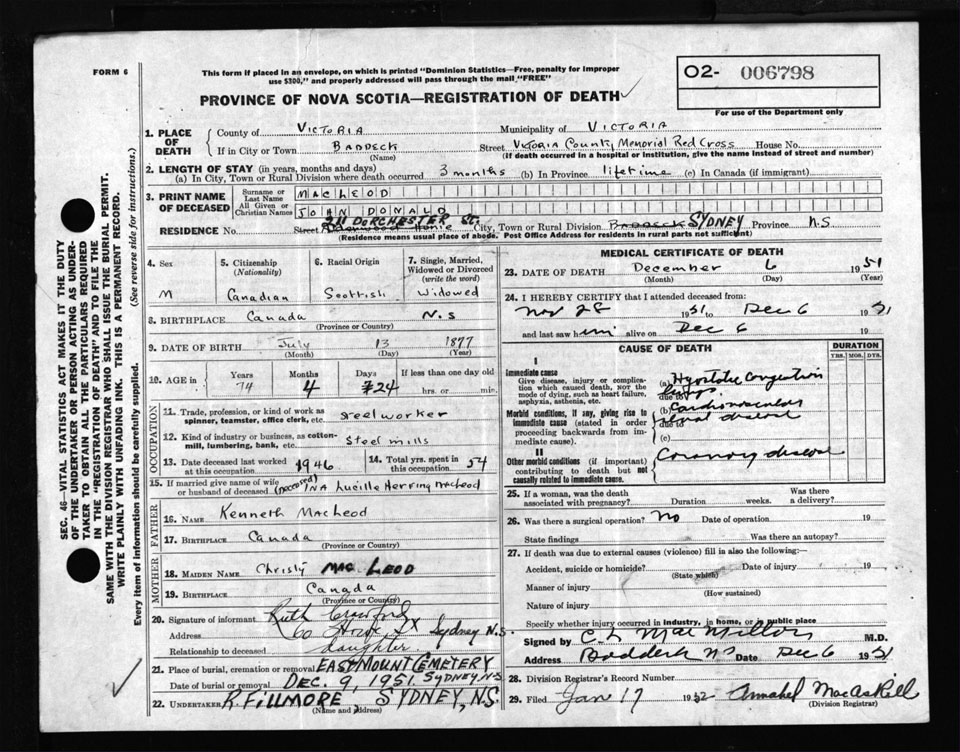 FORM 6
This form if placed in an envelope, on which is printed "Dominion Statistics—Free, penalty for improper
use $300," and properly addressed will pass through the mail "FREE"
O2- 006798
For use of the Department only
PROVINCE OF NOVA SCOTIA—REGISTRATION OF DEATH
1. PLACE OF DEATH County of VICTORIA Municipality of VICTORIA
If in City or Town BADDECK Street Victoria County Memorial Red Cross House No.
(Name) (If death occurred in a hospital or institution, give the name instead of street and number)
2. LENGTH OF STAY (in years, months and days)
(a) In City, Town or Rural Division where death occurred 3 months (b) In Province lifetime (c) In Canada (if immigrant)
3. PRINT NAME OF DECEASED Surname or Last Name MACLEOD
All Given or Christian Names JOHN DONALD
RESIDENCE No. 211 DORCHESTER ST. Street City, Town or Rural Division BADDECK SYDNEY Province N.S
(Residence means usual place of abode. Post Office Address for residents in rural parts not sufficient)
4. Sex M
5. Citizenship (Nationality) Canadian
6. Racial Origin Scottish
7. Single, Married, Widowed or Divorced (write the word) Widowed
8. BIRTHPLACE Canada N.S
(Province or Country)
9. DATE OF BIRTH July 13 1877
(Month) (Day) (Year)
10. AGE in Years 74 Months 4 Days 24 If less than one day old hrs. or min.
OCCUPATION
11. Trade, profession, or kind of work as spinner, teamster, office clerk, etc. steelworker
12. Kind of industry or business, as cotton-mill, lumbering, bank, etc. Steel mills
13. Date deceased last worked at this occupation 1946 14. Total yrs. spent in this occupation 54
15. If married give name of wife or husband of deceased (deceased) INA Lucille Herring MacLeod
FATHER
16. NAME Kenneth MacLeod
17. BIRTHPLACE Canada
(Province or Country)
MOTHER
18. MAIDEN NAME Christy MAC LEOD
19. BIRTHPLACE Canada
(Province or Country)
20. Signature of informant Ruth Crawford
Address 60 Sydney N.S.
Relationship to deceased daughter
21. Place of burial, cremation or removal EASTMOUNT CEMETERY
Date of burial or removal DEC. 9, 1951. SYDNEY N.S
22. UNDERTAKER R. FILLMORE, SYDNEY, N.S.
(Name and address)
MEDICAL CERTIFICATE OF DEATH
23. DATE OF DEATH December 6 1951
(Month) (Day) (Year)
24. I HEREBY CERTIFY that I attended deceased from
Nov 28 1951 to Dec 6 1951
and last saw him alive on Dec 6 19
CAUSE OF DEATH DURATION
YRS. MOS. DYS.
I
Immediate cause
Give disease, injury or complication which caused death, NOT the mode of dying, such as heart failure, asphyxia, asthenia, etc.
(a) Hypostatic Congestion
due to
Morbid conditions, if any, giving rise to immediate cause (stated in order proceeding backwards from immediate cause).
(b) Cardiovascular
due to renal disease
(c)
II
Other morbid conditions (if important) contributing to death but not causally related to immediate cause.
Coronary disease
25. If a woman, was the death associated with pregnancy? Duration weeks. Was there a delivery?
26. Was there a surgical operation? No Date of operation 19
State findings Was there an autopsy?
27. If death was due to external causes (violence) fill in also the following:—
Accident, suicide or homicide? Date of injury 19
(State which)
Manner of injury
(How sustained)
Nature of injury
Specify whether injury occurred in industry, in home, or in public place
Signed by C. L. MacMillan M.D.
Address Baddeck NS Date Dec 6 1951
28. Division Registrar's Record Number
29. Filed Jan 17 1952 Annabel MacAskill
(Division Registrar)
SEC. 46—VITAL STATISTICS ACT MAKES IT THE DUTY
OF THE UNDERTAKER OR PERSON ACTING AS UNDER-
TAKER TO OBTAIN ALL THE PARTICULARS REQUIRED
IN THE "REGISTRATION OF DEATH" AND TO FILE THE
SAME WITH THE DIVISION REGISTRAR WHO SHALL ISSUE THE BURIAL PERMIT.
WRITE PLAINLY WITH UNFADING INK. THIS IS A PERMANENT RECORD.
Every item of information should be carefully supplied. (See reverse side for instructions.)